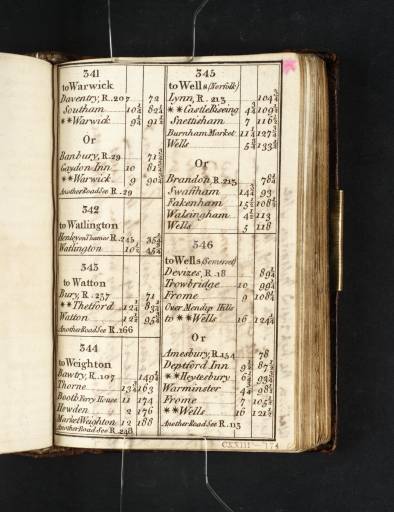 341
to Warwick
Daventry, R. 207 72
Southam 10¾ 82¾
**Warwick 9¾ 91¾
Or
Banbury, R. 29 71
Gaydon Inn 10 81
**Warwick 9 90
Another Road See R. 29
342
to Watlington
Henley on Thames R. 245 35
Watlington 10 45
343
to Watton
Bury, R. 237 71
**Thetford 12 83
Watton 12 95
Another Road See R. 266
344
to Weighton
Bawtry, R. 107 149
Thorne 13 163
Booth Ferry House 11 174
Howden 2 176
Market Weighton 12 188
Another Road See R. 248
345
to Wells (Norfolk)
Lynn, R. 213 104
**Castle Riseing 4 109
Snettisham 7 116
Burnham Market 11 127
Wells 5 133
Or
Brandon, R. 213 78
Swaffham 14 93
Fakenham 15 108
Walsingham 4 113
Wells 5 118
346
to Wells (Somerset)
Devizes, R. 18 89
Trowbridge 10 99
Frome 9 108
Over Mendip Hills
to **Wells 16 124
Or
Amesbury, R. 154 78
Deptford Inn 9 87
**Heytesbury 6 93
Warminster 4 98
Frome 7 105
**Wells 16 121
Another Road See R. 113
CXXIII 174